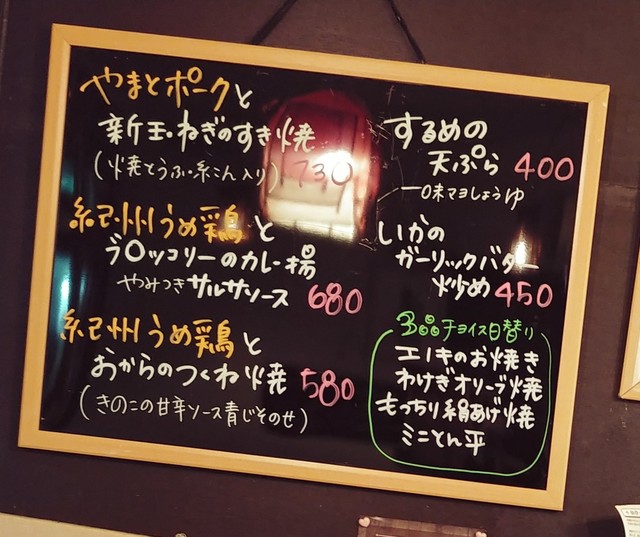 やまとポークと
新玉ねぎのすき焼
(焼とうふ・糸こん入り) 730
紀州うめ鶏と
ブロッコリーのカレー揚
やみつきサルサソース 680
紀州うめ鶏と
おからのつくね焼 580
(きのこの甘辛ソース青じそのせ)
するめの
天ぷら 400
一味マヨしょうゆ
いかの
ガーリックバター
炒め 450
3品チョイス日替り
エノキのお焼き
わけぎオリーブ焼
もっちり絹あげ焼
ミニとん平